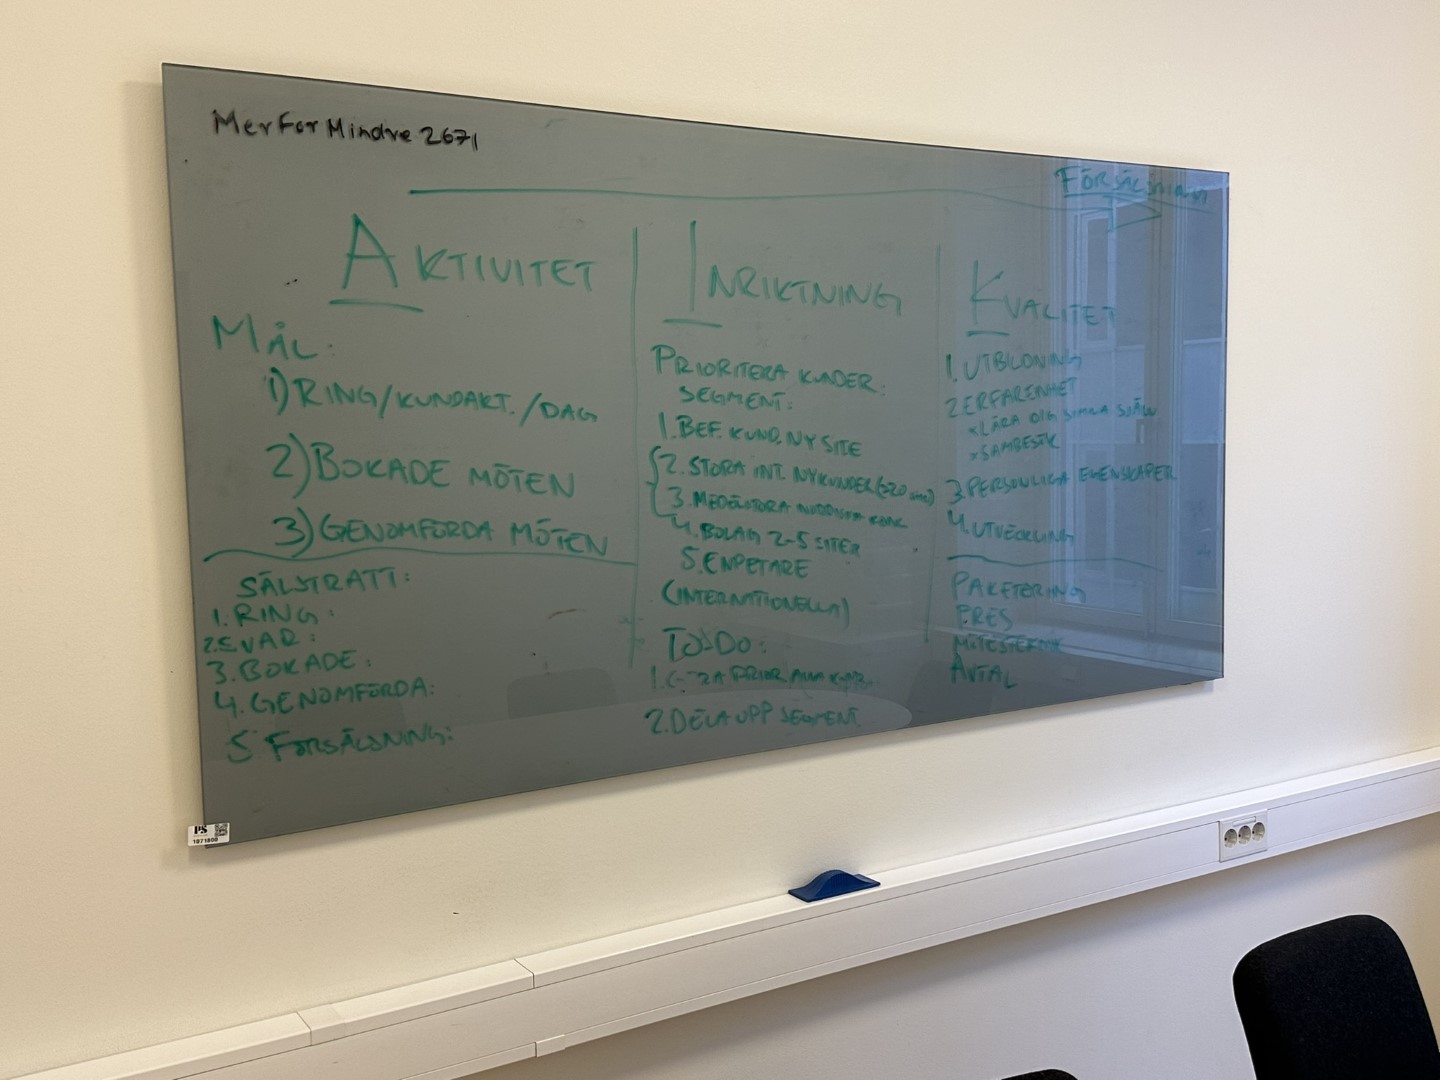 MerForMindre 2671
FÖRSÄLJNING
AKTIVITET
MÅL:
1) RING/KUNDAKT./DAG
2) BOKADE MÖTEN
3) GENOMFÖRDA MÖTEN
SÄLJTRATT:
1. RING:
2. SVAR:
3. BOKADE:
4. GENOMFÖRDA:
5. FÖRSÄLJNING:
INRIKTNING
PRIORITERA KUNDER:
SEGMENT:
1. BEF. KUND, NY SITE
2. STORA INT. NYKUNDER
3. MEDELSTORA NORDISKA
4. BOLAG 2-5 SITER
5. ENPETARE
(INTERNATIONELLA)
TO-DO:
1.
2. DELA UPP SEGMENT.
KVALITET
1. UTBILDNING
2. ERFARENHET
x LÄRA OCH SJÄLV
x SAMBESÖK
3. PERSONLIGA EGENSKAPER
4. UTVECKLING
PAKETERING
PRES
MÖTESTEKNIK
AVTAL
PS
1071800